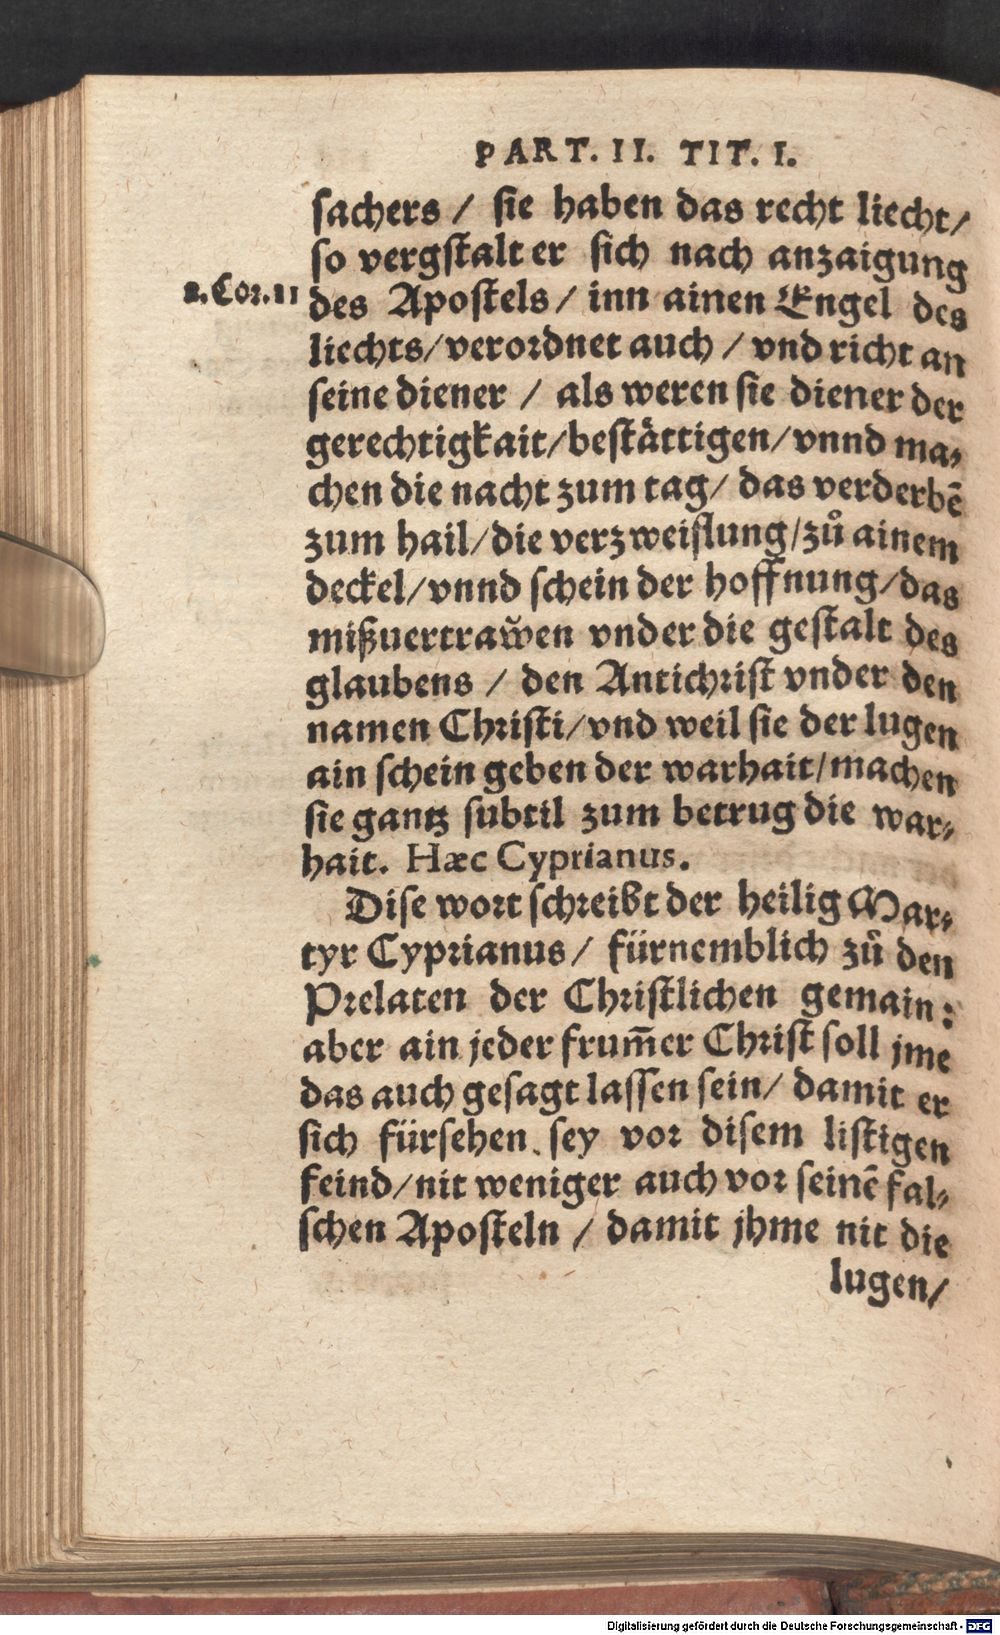 PART. II. TIT. I.
sachers / sie haben das recht liecht/
so vergstalt er sich nach anzaigung
2.Cor.11
des Apostels / inn ainen Engel des
liechts/verordnet auch / vnd richt an
seine diener / als weren sie diener der
gerechtigkait/bestättigen/vnnd ma-
chen die nacht zum tag/ das verderbẽ
zum hail/die verzweiflung/zů ainem
deckel/vnnd schein der hoffnung/das
mißuertraw̃en vnder die gestalt des
glaubens / den Antichrist vnder den
namen Christi/vnd weil sie der lugen
ain schein geben der warhait/machen
sie gantz subtil zum betrug die war-
hait. Hæc Cyprianus.
Dise wort schreibt der heilig Mar-
tyr Cyprianus / fürnemblich zů den
Prelaten der Christlichen gemain:
aber ain jeder frum̃er Christ soll jme
das auch gesagt lassen sein/ damit er
sich fürsehen sey vor disem listigen
feind/nit weniger auch vor seinẽ fal-
schen Aposteln / damit jhme nit die
lugen/
Digitalisierung gefördert durch die Deutsche Forschungsgemeinschaft - DFG